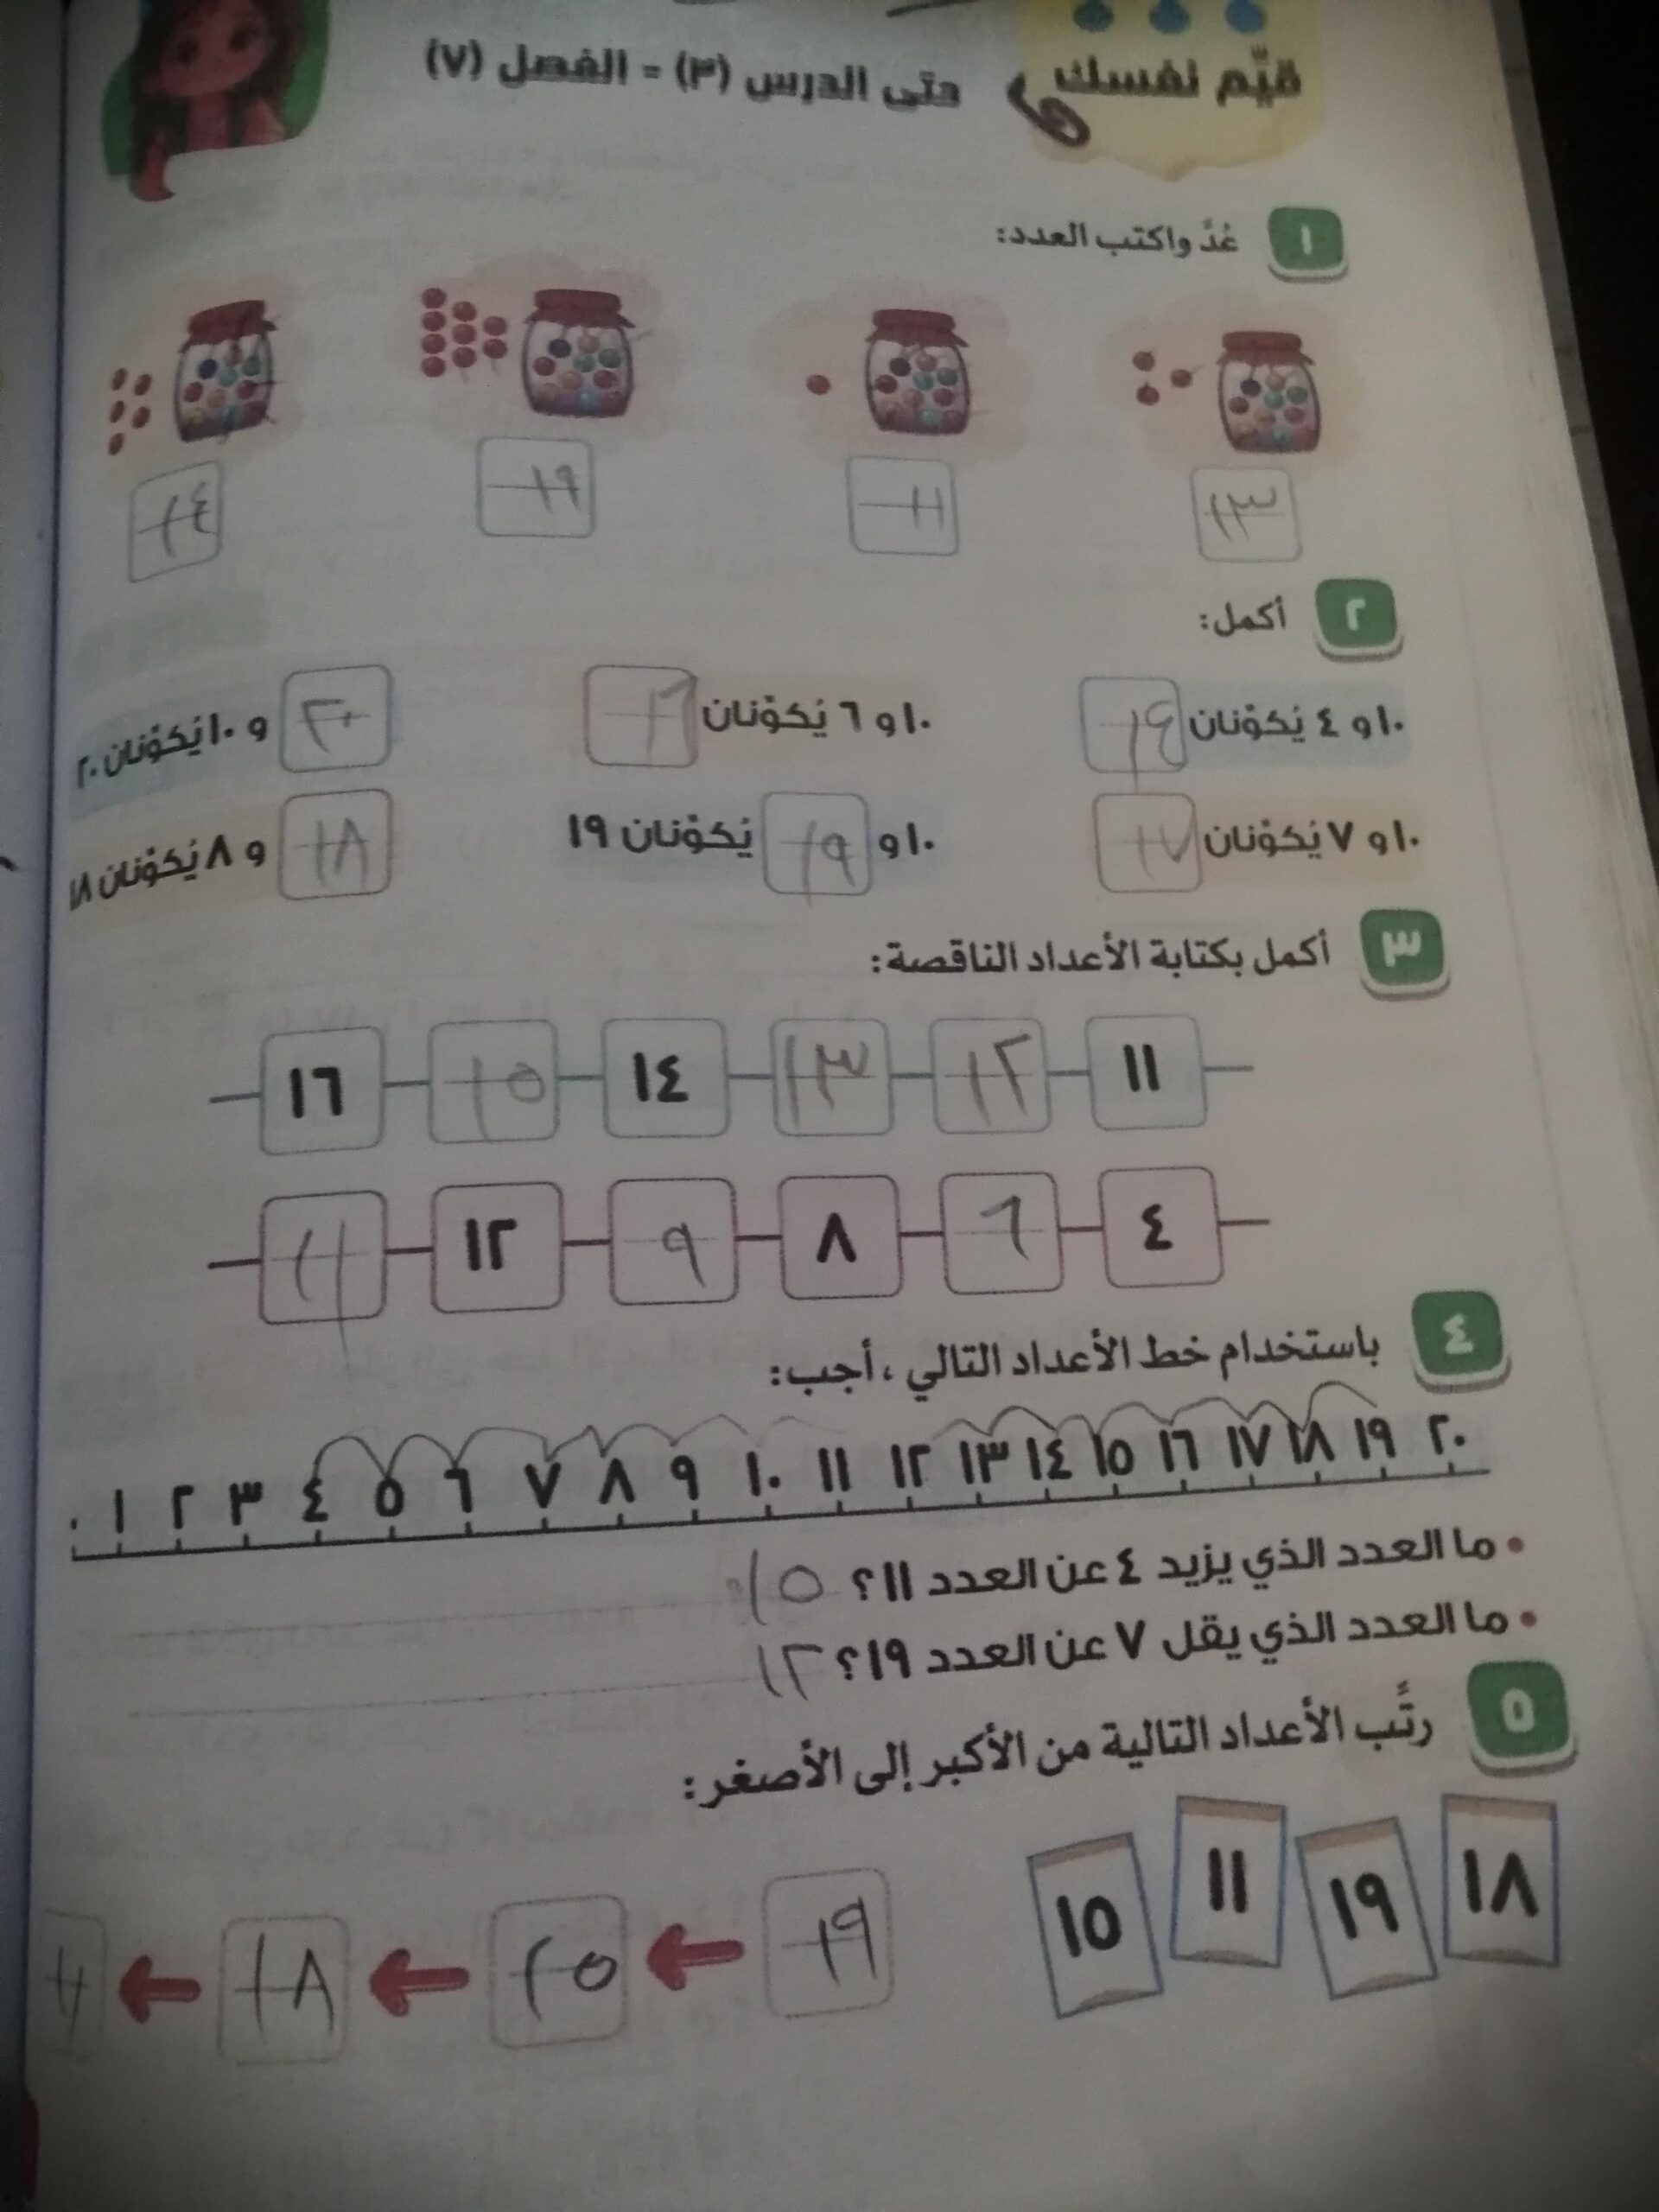 قيِّم نفسك حتى الدرس (٣) - الفصل (٧)
١ عُدَّ واكتب العدد:
١٣ ١١ ١٩ ١٤
٢ أكمل:
١٠ و ٤ يُكوِّنان ١٤ ١٠ و ٦ يُكوِّنان ١٦ ٢٠ و ١٠ يُكوِّنان ٢٠
١٠ و ٧ يُكوِّنان ١٧ ١٠ و ١٩ يُكوِّنان ١٩ ١٨ و ٨ يُكوِّنان ١٨
٣ أكمل بكتابة الأعداد الناقصة:
١١ ١٢ ١٣ ١٤ ١٥ ١٦
٤ ٦ ٨ ٩ ١٢ ١١
٤ باستخدام خط الأعداد التالي ، أجب:
٠ ١ ٢ ٣ ٤ ٥ ٦ ٧ ٨ ٩ ١٠ ١١ ١٢ ١٣ ١٤ ١٥ ١٦ ١٧ ١٨ ١٩ ٢٠
• ما العدد الذي يزيد ٤ عن العدد ١١؟ ١٥
• ما العدد الذي يقل ٧ عن العدد ١٩؟ ١٢
٥ رتِّب الأعداد التالية من الأكبر إلى الأصغر:
١٨ ١٩ ١١ ١٥
١٩ ١٥ ١٨ ١١